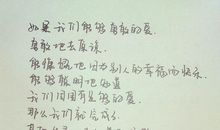 如果我们能够勇敢的爱.
勇敢地去原谅.
能慷慨地因为别人的幸福而快乐.
能够聪明地知道
我们周围有足够的爱.
那么我们就完成了